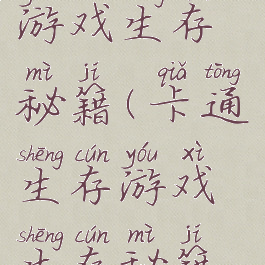 游戏生存
mì jí qiǎ tōng
秘籍(卡通
shēng cún yóu xì
生存游戏
shēng cún mì jí
生存秘籍